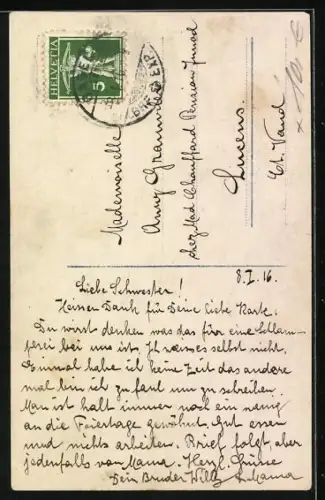 HELVETIA
5
BRF. EXP.
Mademoiselle
Anny
chez Mad Chauffard Pension
Lucens.
Ct. Vaud
8.I.16.
Liebe Schwester!
Keinen Dank für Deine liebe Karte.
Du wirst denken was das für eine Schlam-
perei bei uns ist. Ich weiss es selbst nicht.
Einmal habe ich keine Zeit das andere
mal bin ich zu faul um zu schreiben.
Man ist halt immer noch ein wenig
an die Feiertage gewöhnt, gut essen
und nichts arbeiten. Brief folgt, aber
jedenfalls von Mama. Herzl. Grüsse
Dein Bruder Willy Mama